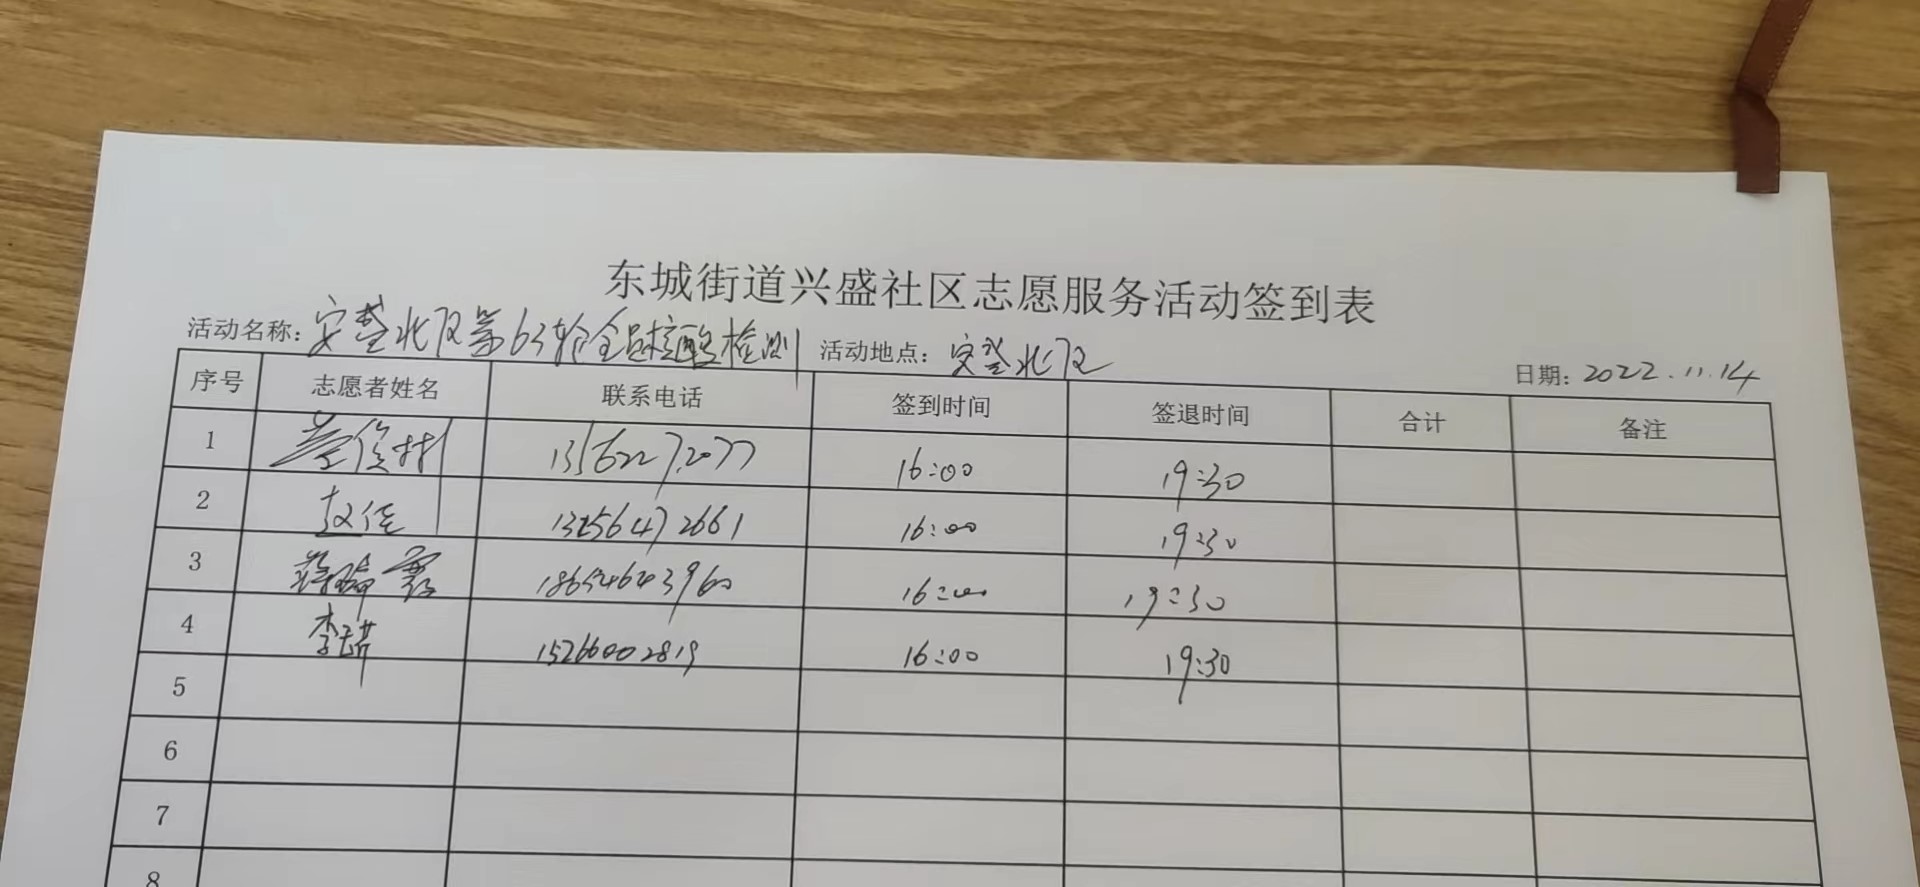 东城街道兴盛社区志愿服务活动签到表
活动名称: 安登北区第63轮全员核酸检测 活动地点: 安登北区 日期: 2022.11.14
序号 志愿者姓名 联系电话 签到时间 签退时间 合计 备注
1 13562272077 16:00 19:30
2 赵佳 13256472661 16:00 19:30
3 18654643960 16:00 19:30
4 李 15266002819 16:00 19:30
5
6
7
8